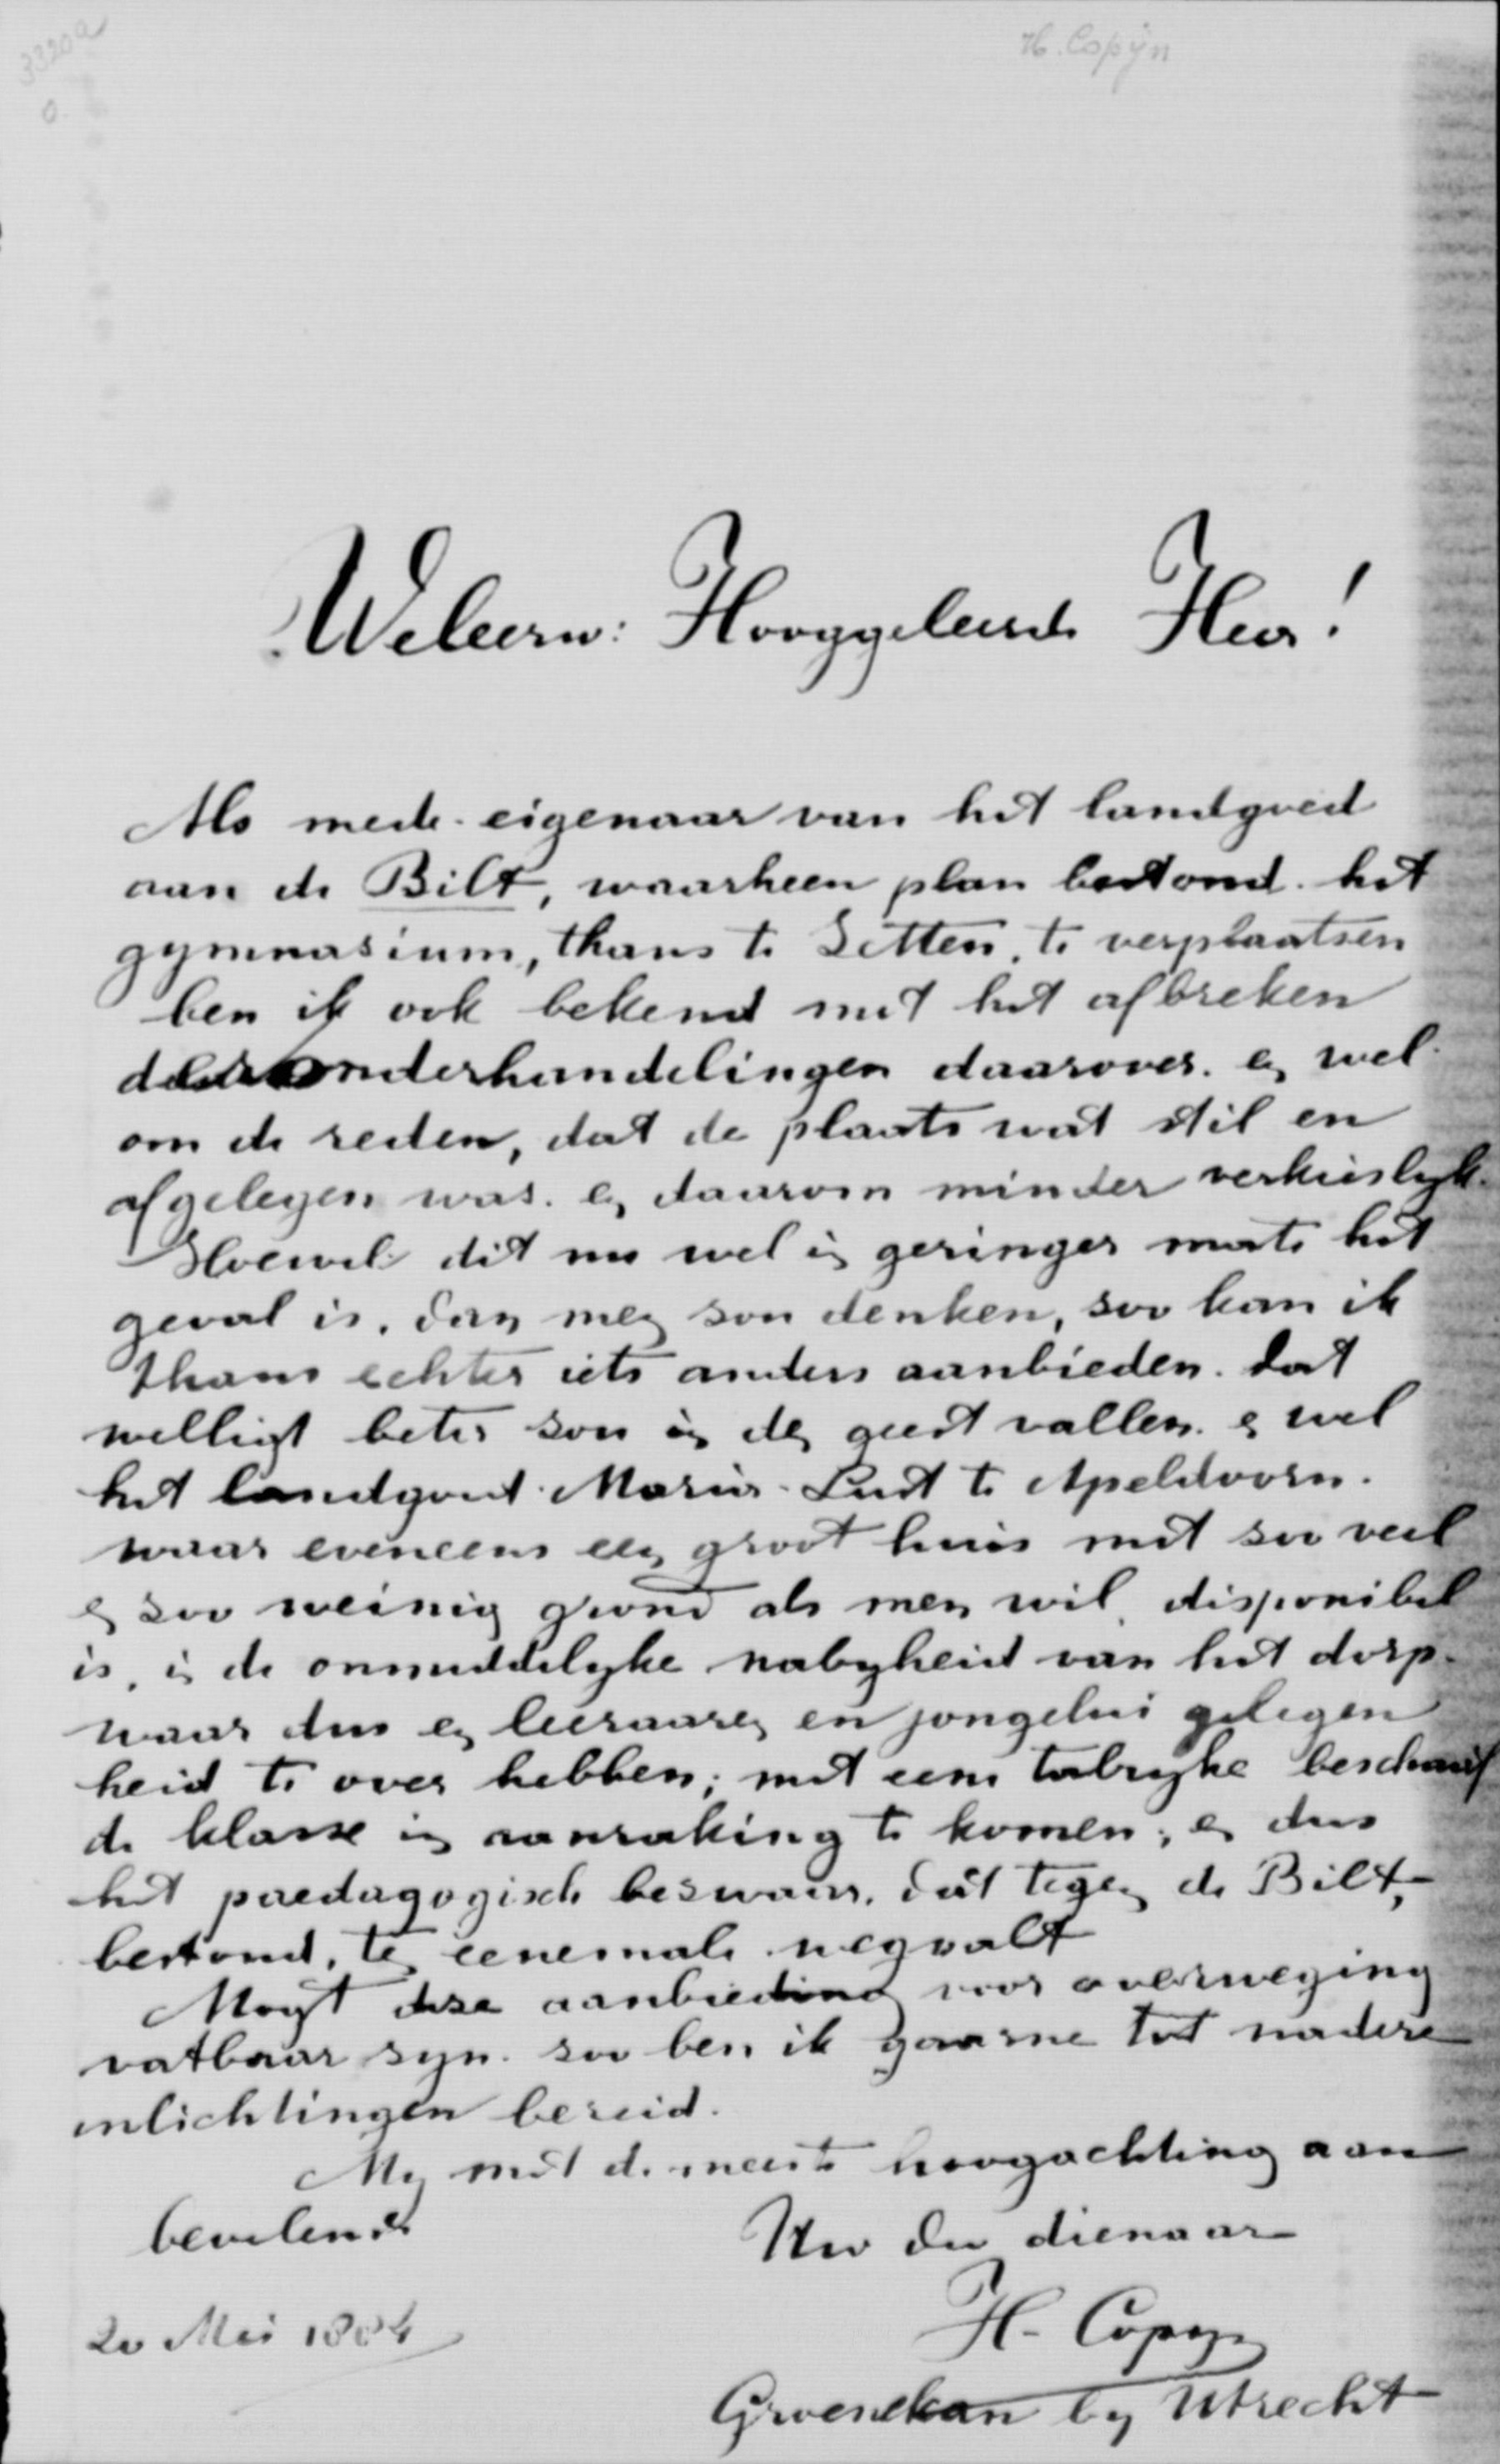 3320a
0.
H. Copÿn
Weleerw: Hooggeleerde Heer!
Als mede-eigenaar van het landgoed
aan de Bilt, waarheen plan bestond het
gymnasium, thans te Zetten, te verplaatsen
ben ik ook bekend met het afbreken
der onderhandelingen daarover. en wel
om de reden, dat de plaats wat stil en
afgelegen was. en daarom minder verkieslyk.
Hoewel dit nu wel in geringer mate het
geval is, dan men zou denken, zoo kan ik
thans echter iets anders aanbieden. dat
welligt beter zou in den geest vallen. en wel
het landgoed Marius-Lust te Apeldoorn.
waar eveneens een groot huis met zoo veel
en zoo weinig grond als men wil, disponibel
is, in de onmiddelyke nabyheid van het dorp.
waar dus en leeraaren en jongelui gelegen
heid te over hebben; met eene talryke beschaaf
de klasse in aanraking te komen; en dus
het paedagogisch bezwaar. dat tegen de Bilt,
bestond, ten eenemale wegvalt
Mogt deze aanbieding voor overweging
vatbaar zyn. zoo ben ik gaarne tot nadere
inlichtingen bereid.
My met de meeste hoogachting aan
bevelende
Uw Dw dienaar
20 Mei 1884
H. Copyn
Groenekan by Utrecht